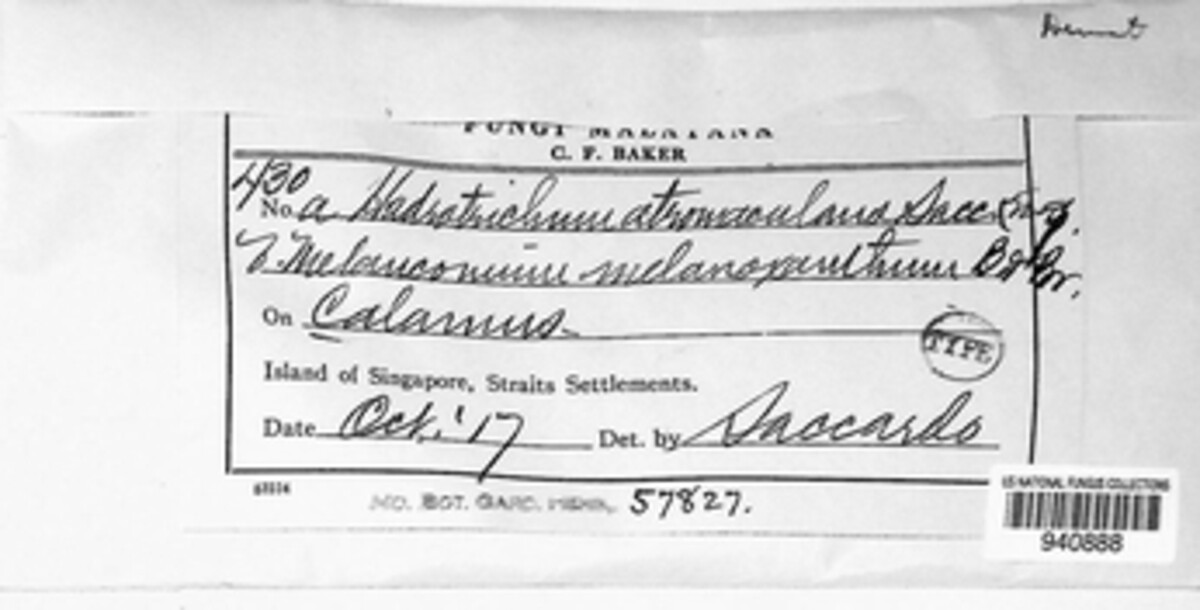 Dermat
FUNGI MALAYANA
C. F. BAKER
430
No. a Hadrotrichum atromaculans Sacc.
b. Melanconium melanoxanthum B & Br.
On Calamus
TYPE
Island of Singapore, Straits Settlements.
Date Oct. '17 Det. by Saccardo
MO. BOT. GARD. HERB. 57827.
US NATIONAL FUNGUS COLLECTIONS
940888